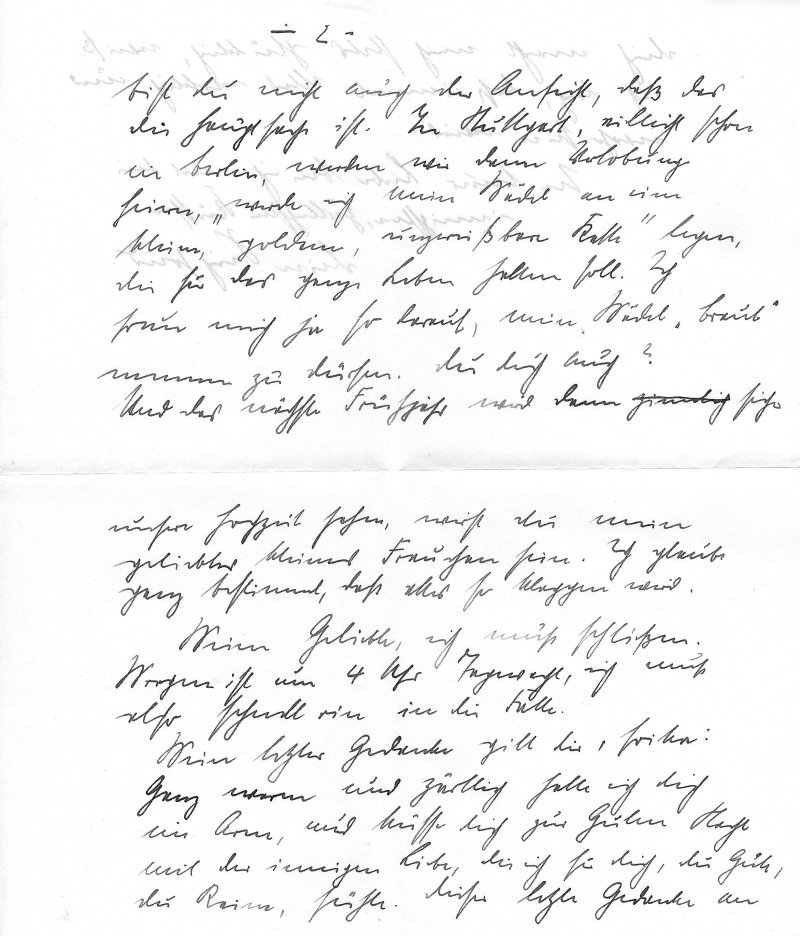 - 2 -
bist du nicht auch der Ansicht, daß das
die Hauptsache ist. In Stuttgart, villicht schon
in Berlin, werden wir dann Verlobung
feiern, „werde ich mein Mädel an eine
kleine, goldene, unzerreißbare Kette" legen,
die für das ganze Leben halten soll. Ich
freue mich ja so darauf, mein Mädel „Braut"
nennen zu dürfen. Du dich auch?
Und das nächste Frühjahr wird dann ziemlich sicher
unsere Hochzeit sehen, wirst du mein
geliebtes kleines Frauchen sein. Ich glaube
ganz bestimmt, daß alles so klappen wird.
Meine Geliebte, ich muß schließen.
Morgen ist um 4 Uhr Tagwacht, ich muß
also schnell rin in die Falle.
Mein letzter Gedanke gilt dir,
Ganz warm und zärtlich halte ich dich
im Arm, und küsse dich zur Guten Nacht
mit der innigen Liebe, die ich für dich, du Gute,
du Reine, fühle. Dieser letzte Gedanke an